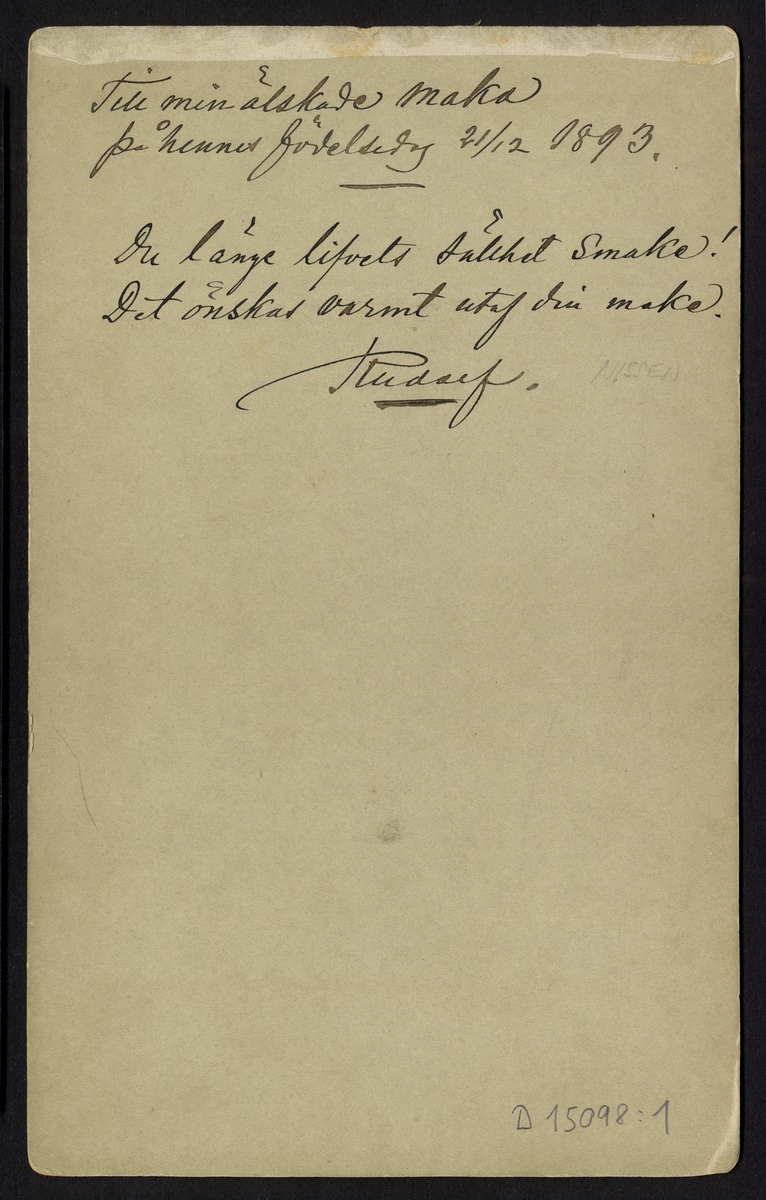 Till min älskade Maka
på hennes födelsedag 21/12 1893.
Du länge lifvets sällhet smake!
Det önskas varmt utaf din make.
Rudolf.
NISSEN
D 15098:1